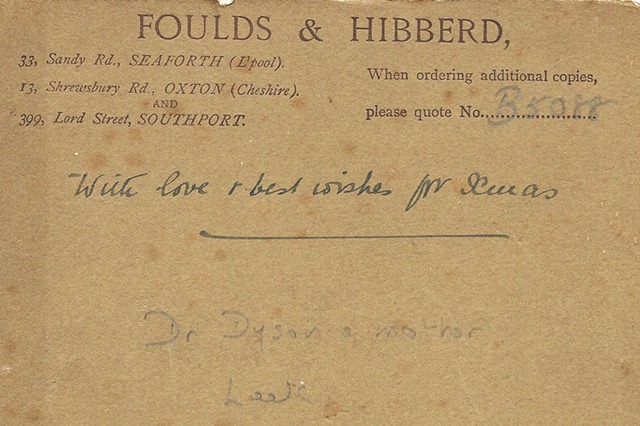 FOULDS & HIBBERD,
33, Sandy Rd., SEAFORTH (L'pool).
13, Shrewsbury Rd., OXTON (Cheshire).
AND
399, Lord Street, SOUTHPORT.
When ordering additional copies,
please quote No. B5088
With love & best wishes for Xmas
Dr Dyson's mother